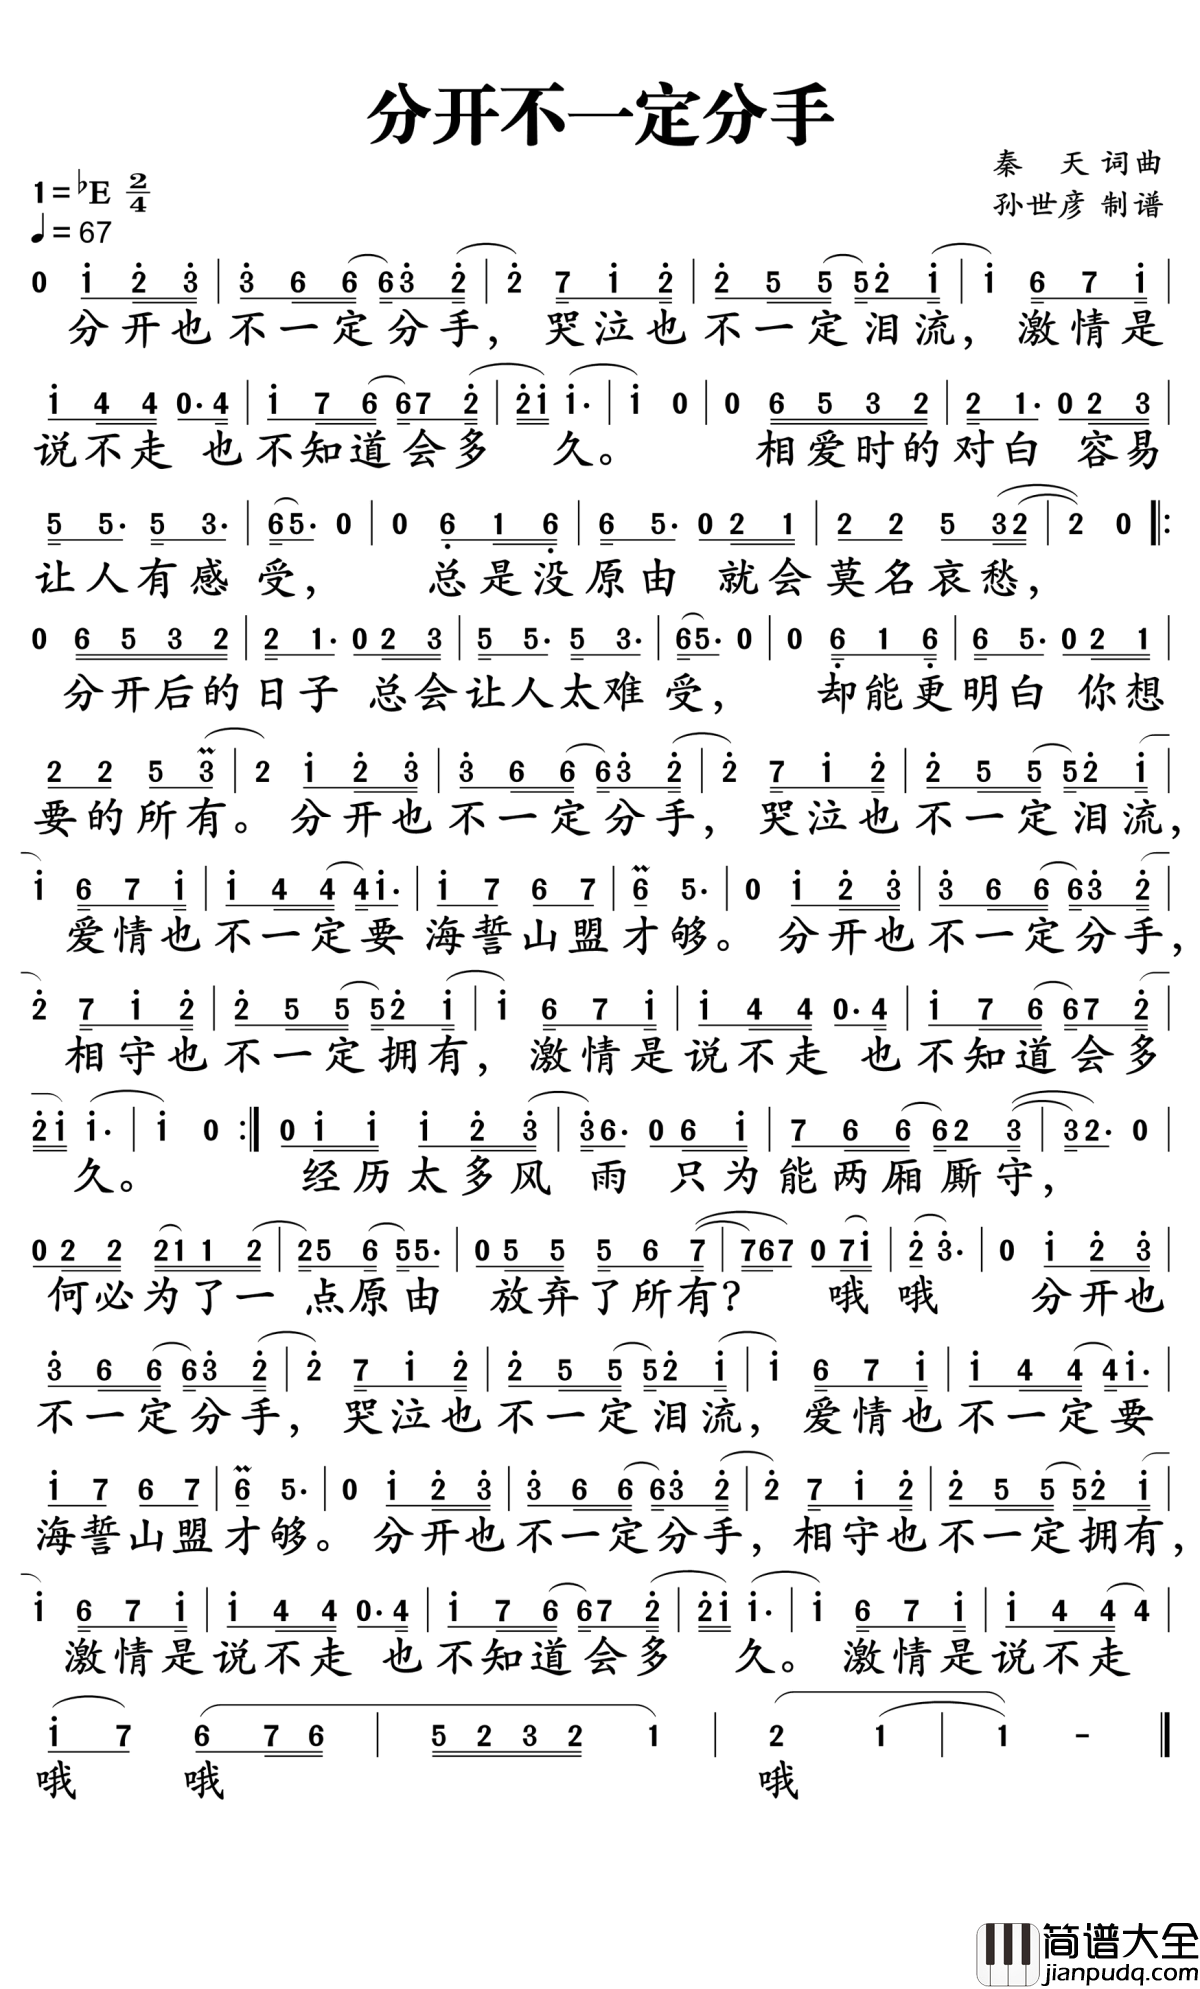 分开不一定分手
秦 天 词曲
1=♭E 2/4
孙世彦 制谱
♩= 67
0 i 2̇ 3̇ | 3̇ 6 6 63̇ 2̇ | 2̇ 7 i 2̇ | 2̇ 5 5 52̇ i | i 6 7 i |
分开也 不一定分手, 哭泣也 不一定泪流, 激情是
i 4 4 0·4 | i 7 6 67 2̇ | 2̇i i· | i 0 | 0 6 5 3 2 | 2 1· 0 2 3 |
说不走 也不知道会多 久。 相爱时的对白 容易
5 5· 5 3· | 65· 0 | 0 6̣ 1 6̣ | 6 5· 0 2 1 | 2 2 5 32 | 2 0 ‖:
让人有感 受, 总是没原由 就会莫名哀愁,
0 6 5 3 2 | 2 1· 0 2 3 | 5 5· 5 3· | 65· 0 | 0 6̣ 1 6̣ | 6 5· 0 2 1 |
分开后的日子 总会让人太难 受, 却能更明白 你想
2 2 5 3 | 2 i 2̇ 3̇ | 3̇ 6 6 63̇ 2̇ | 2̇ 7 i 2̇ | 2̇ 5 5 52̇ i |
要的所有。分开也 不一定分手, 哭泣也 不一定泪流,
i 6 7 i | i 4 4 4i· | i 7 6 7 | 6 5· | 0 i 2̇ 3̇ | 3̇ 6 6 63̇ 2̇ |
爱情也 不一定要 海誓山盟才够。 分开也不一定分手,
2̇ 7 i 2̇ | 2̇ 5 5 52̇ i | i 6 7 i | i 4 4 0·4 | i 7 6 67 2̇ |
相守也 不一定拥有, 激情是说不走 也不知道会多
2̇i i· | i 0 :‖ 0 i i i 2̇ 3̇ | 3̇6· 0 6 i | 7 6 6 62 3 | 32· 0 |
久。 经历太多风 雨 只为能两厢厮守,
0 2 2 21 1 2 | 25 6 55· | 0 5 5 5 6 7 | 767 0 7i | 2̇ 3̇· | 0 i 2̇ 3̇ |
何必为了一 点原由 放弃了所有? 哦 哦 分开也
3̇ 6 6 63̇ 2̇ | 2̇ 7 i 2̇ | 2̇ 5 5 52̇ i | i 6 7 i | i 4 4 4i· |
不一定分手, 哭泣也 不一定泪流, 爱情也 不一定要
i 7 6 7 | 6 5· | 0 i 2̇ 3̇ | 3̇ 6 6 63̇ 2̇ | 2̇ 7 i 2̇ | 2̇ 5 5 52̇ i |
海誓山盟才够。 分开也不一定分手, 相守也不一定拥有,
i 6 7 i | i 4 4 0·4 | i 7 6 67 2̇ | 2̇i i· | i 6 7 i | i 4 4 4 |
激情是说不走 也不知道会多 久。激情是说不走
i 7 6 7 6 | 5 2 3 2 1 | 2 1 | 1 - ‖
哦 哦 哦
简谱大全
jianpudq.com